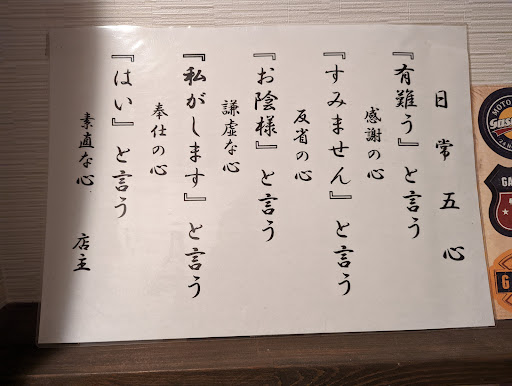 日常五心
『有難う』と言う
感謝の心
『すみません』と言う
反省の心
『お陰様』と言う
謙虚な心
『私がします』と言う
奉仕の心
『はい』と言う
素直な心 店主
MOTO
GA
G